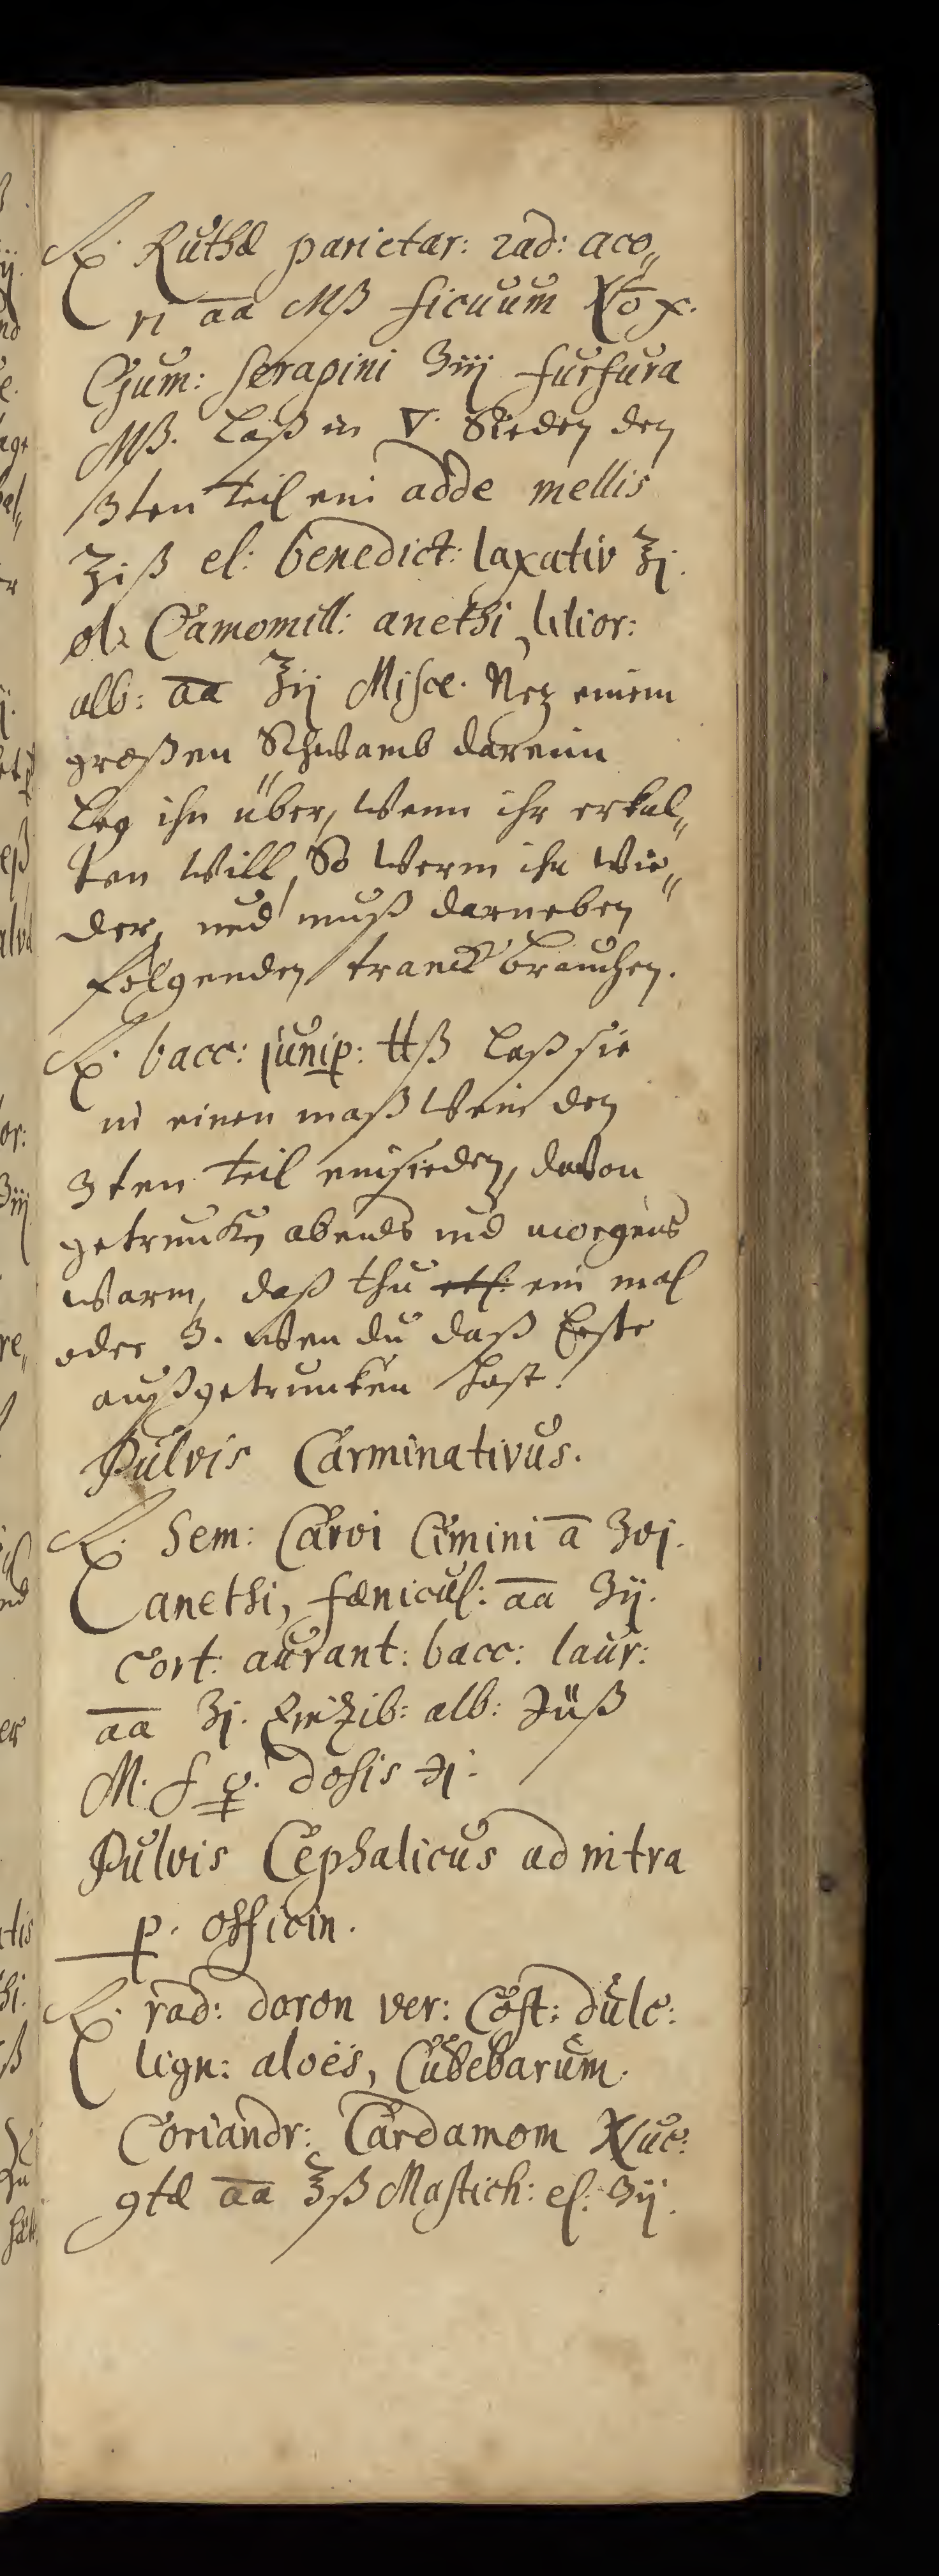 ℞. Ruthæ parietar: rad: aco„
ri āā Mß ficuum No x.
Gum: serapini ʒiij furfura
Mß. Laß in ▽. Sieden den
3ten teil ein adde mellis
℥iß el: benedict: laxativ ℥j.
ol: Camomill: anethi, lilior:
alb: āā ℥ij Misce. Nez einem
großen Schwamb darein
Leg ihn über, wenn ihr erkal„
ten will, So werm ihn wie„
der, und muß darneben
folgenden tranck brauchen.
℞. bacc: junip: ℔ß Laß sie
in einen maß wein den
3ten teil einsieden, davon
getruncken abends und morgens
warm, daß thu ein mal
oder 3. wen du daß Erste
außgetruncken hast!
Pulvis Carminativus.
℞. Sem: Carvi Cimini ā ʒvj.
anethi, fœnicul: āā ʒij.
Cort: aurant: bacc: laur:
āā ʒj. Zinzib: alb: ʒiiß
M. f. p. dosis ʒj.
Pulvis Cephalicus ad nitra
p. officin.
℞. rad: doron ver: Cost: dulc:
lign: aloës, Cubebarum.
Coriandr: Cardamom Nuc:
℥ß Mastich: el: ʒij.